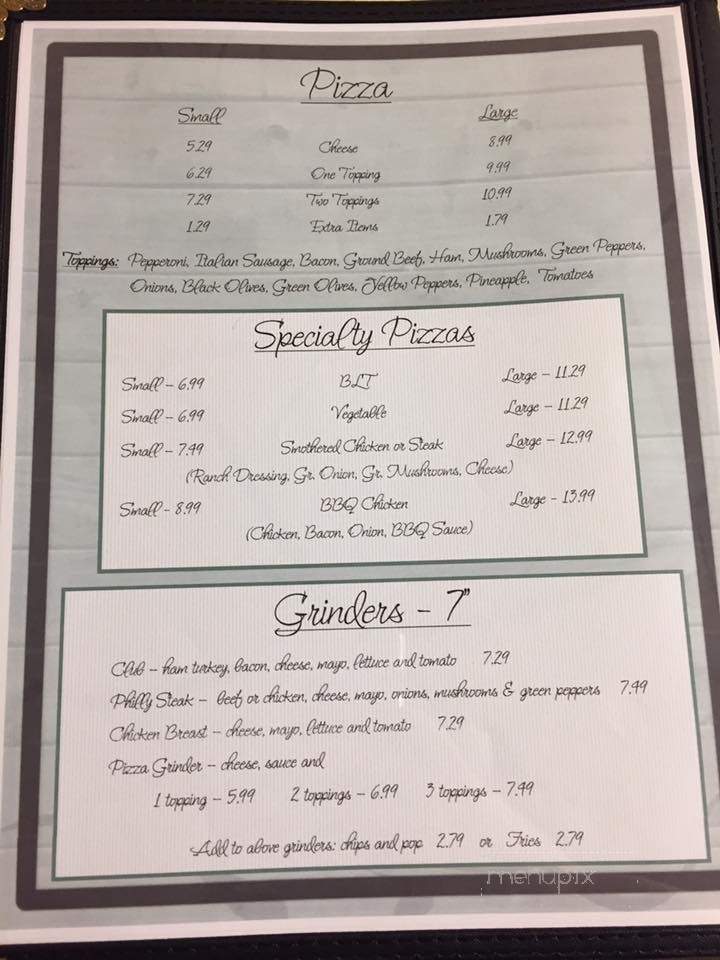 Pizza
Small Large
5.29 Cheese 8.99
6.29 One Topping 9.99
7.29 Two Toppings 10.99
1.29 Extra Items 1.79
Toppings: Pepperoni, Italian Sausage, Bacon, Ground Beef, Ham, Mushrooms, Green Peppers,
Onions, Black Olives, Green Olives, Yellow Peppers, Pineapple, Tomatoes
Specialty Pizzas
Small – 6.99 BLT Large – 11.29
Small – 6.99 Vegetable Large – 11.29
Small – 7.49 Smothered Chicken or Steak Large – 12.99
(Ranch Dressing, Gr. Onion, Gr. Mushrooms, Cheese)
Small – 8.99 BBQ Chicken Large – 13.99
(Chicken, Bacon, Onion, BBQ Sauce)
Grinders – 7"
Club – ham turkey, bacon, cheese, mayo, lettuce and tomato 7.29
Philly Steak – beef or chicken, cheese, mayo, onions, mushrooms & green peppers 7.49
Chicken Breast – cheese, mayo, lettuce and tomato 7.29
Pizza Grinder – cheese, sauce and
1 topping – 5.99 2 toppings – 6.99 3 toppings – 7.49
Add to above grinders: chips and pop 2.79 or Fries 2.79
menupix